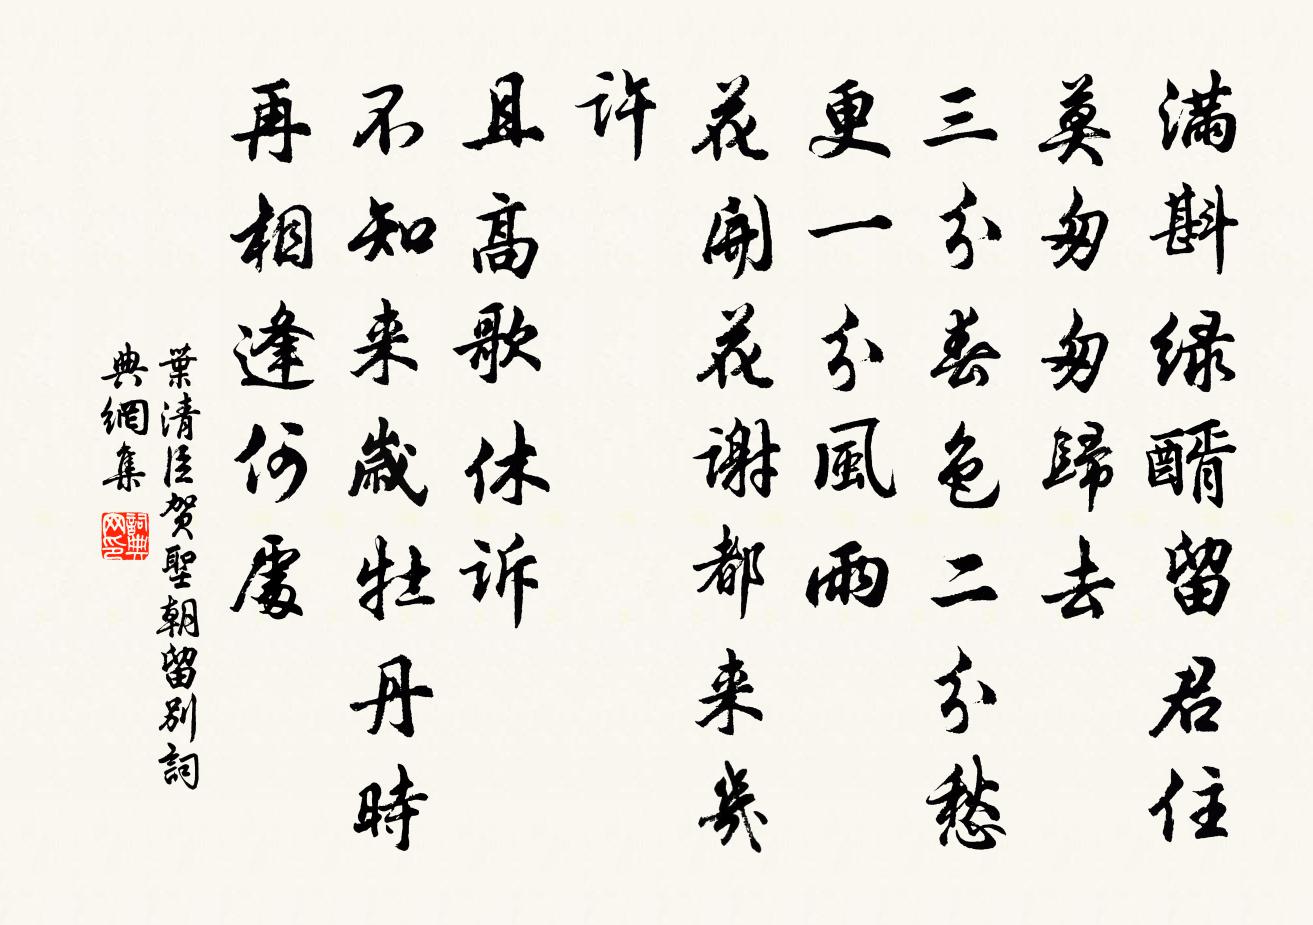 滿斟緑醑留君住
莫匆匆歸去
三分春色二分愁
更一分風雨
花開花謝都来幾
許
且高歌休訴
不知来歲牡丹時
再相逢何處
葉清臣賀聖朝留別詞
典網集
詞典網印